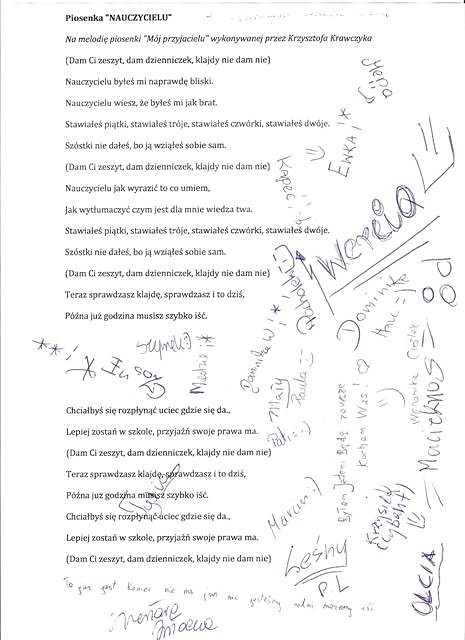 Piosenka "NAUCZYCIELU"
Na melodię piosenki "Mój przyjacielu" wykonywanej przez Krzysztofa Krawczyka
(Dam Ci zeszyt, dam dzienniczek, klajdy nie dam nie)
Nauczycielu byłeś mi naprawdę bliski.
Nauczycielu wiesz, że byłeś mi jak brat.
Stawiałeś piątki, stawiałeś tróje, stawiałeś czwórki, stawiałeś dwóje.
Szóstki nie dałeś, bo ją wziąłeś sobie sam.
(Dam Ci zeszyt, dam dzienniczek, klajdy nie dam nie)
Nauczycielu jak wyrazić to co umiem,
Jak wytłumaczyć czym jest dla mnie wiedza twa.
Stawiałeś piątki, stawiałeś tróje, stawiałeś czwórki, stawiałeś dwóje.
Szóstki nie dałeś, bo ją wziąłeś sobie sam.
(Dam Ci zeszyt, dam dzienniczek, klajdy nie dam nie)
Teraz sprawdzasz klajdę, sprawdzasz i to dziś,
Późna już godzina musisz szybko iść.
EWKA!*
od
Wercia
Dominik
Dominika W!*
Mary
Paula
Marcin :)
Kocham Was!
Maciek
Krzysiek
Leśny
P.L
OLCIA
Chciałbyś się rozpłynąć uciec gdzie się da.,
Lepiej zostań w szkole, przyjaźń swoje prawa ma.
(Dam Ci zeszyt, dam dzienniczek, klajdy nie dam nie)
Teraz sprawdzasz klajdę, sprawdzasz i to dziś,
Późna już godzina musisz szybko iść.
Chciałbyś się rozpłynąć uciec gdzie się da.,
Lepiej zostań w szkole, przyjaźń swoje prawa ma.
(Dam Ci zeszyt, dam dzienniczek, klajdy nie dam nie)
To już jest koniec nie ma już nic jesteśmy wolni możemy iść